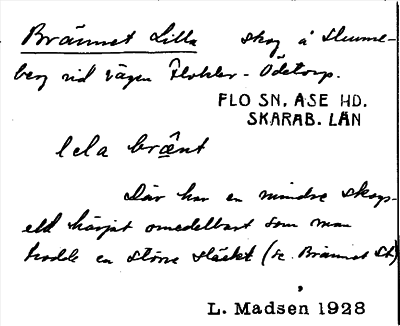 Brännet Lilla skog å Slumre-
berg vid vägen Flokler - Ödetorp.
FLO SN, ASE HD.
SKARAB. LÄN
lela brænt
Där har en mindre skogs-
eld härjat omedelbart som man
hade en större släckt (se Brännet St)
L. Madsen 1928